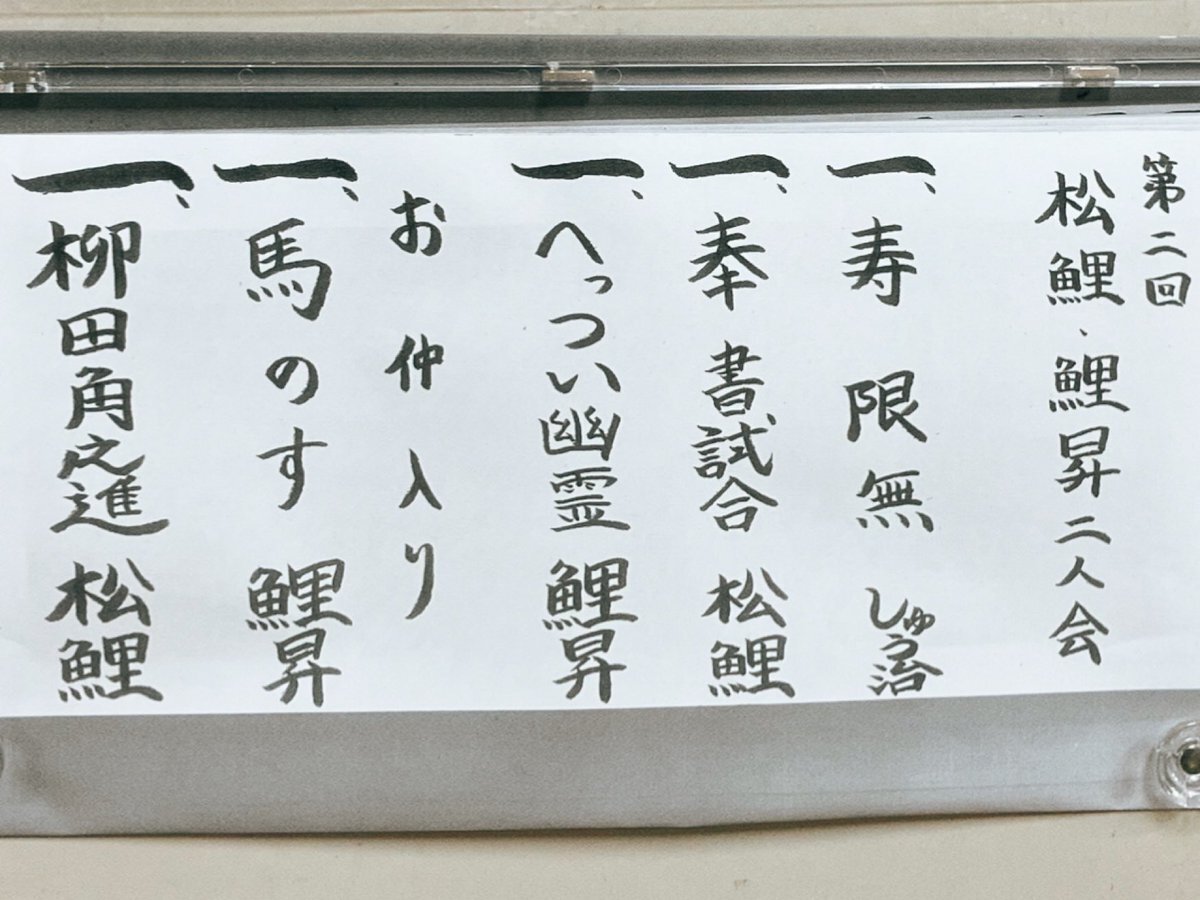 第二回
松鯉、鯉昇二人会
一、寿限無 しゅう治
一、奉書試合 松鯉
一、へっつい幽霊 鯉昇
お仲入り
一、馬のす 鯉昇
一、柳田角之進 松鯉